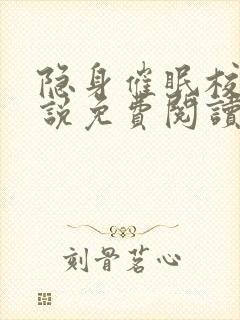 隐身催眠校
說免費閱讀
刻骨茗心